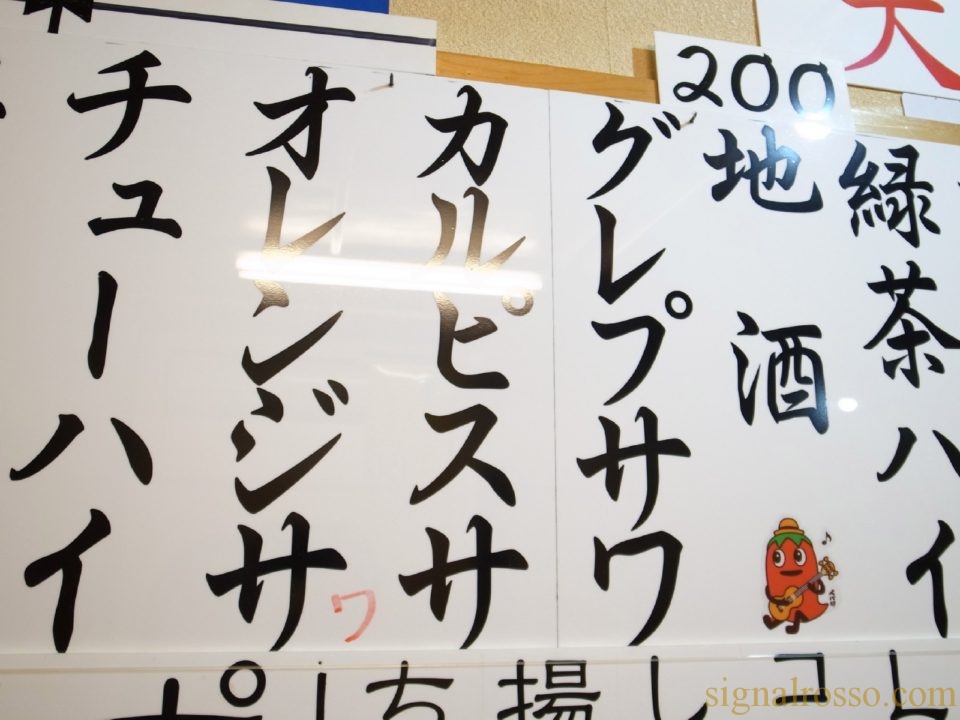 緑茶ハイ
200
地酒
グレプサワ
カルピスサ
オレンジサワ
チューハイ
signalrosso.com